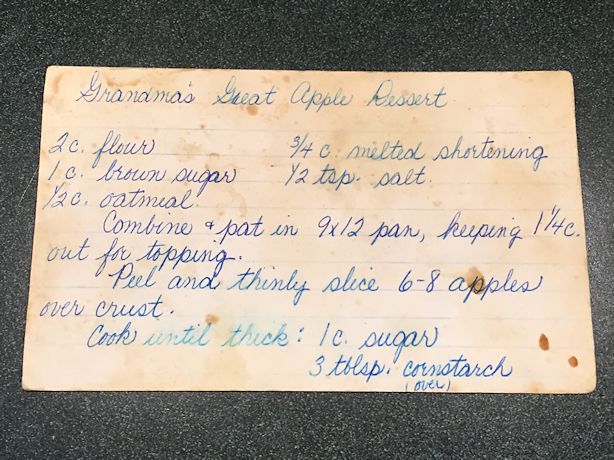 Grandma's Great Apple Dessert
2 c. flour 3/4 c. melted shortening
1 c. brown sugar 1/2 tsp. salt.
1/2 c. oatmeal.
Combine & pat in 9x12 pan, keeping 1 1/4 c.
out for topping.
Peel and thinly slice 6-8 apples
over crust.
Cook until thick: 1 c. sugar
3 tblsp. cornstarch
(over)